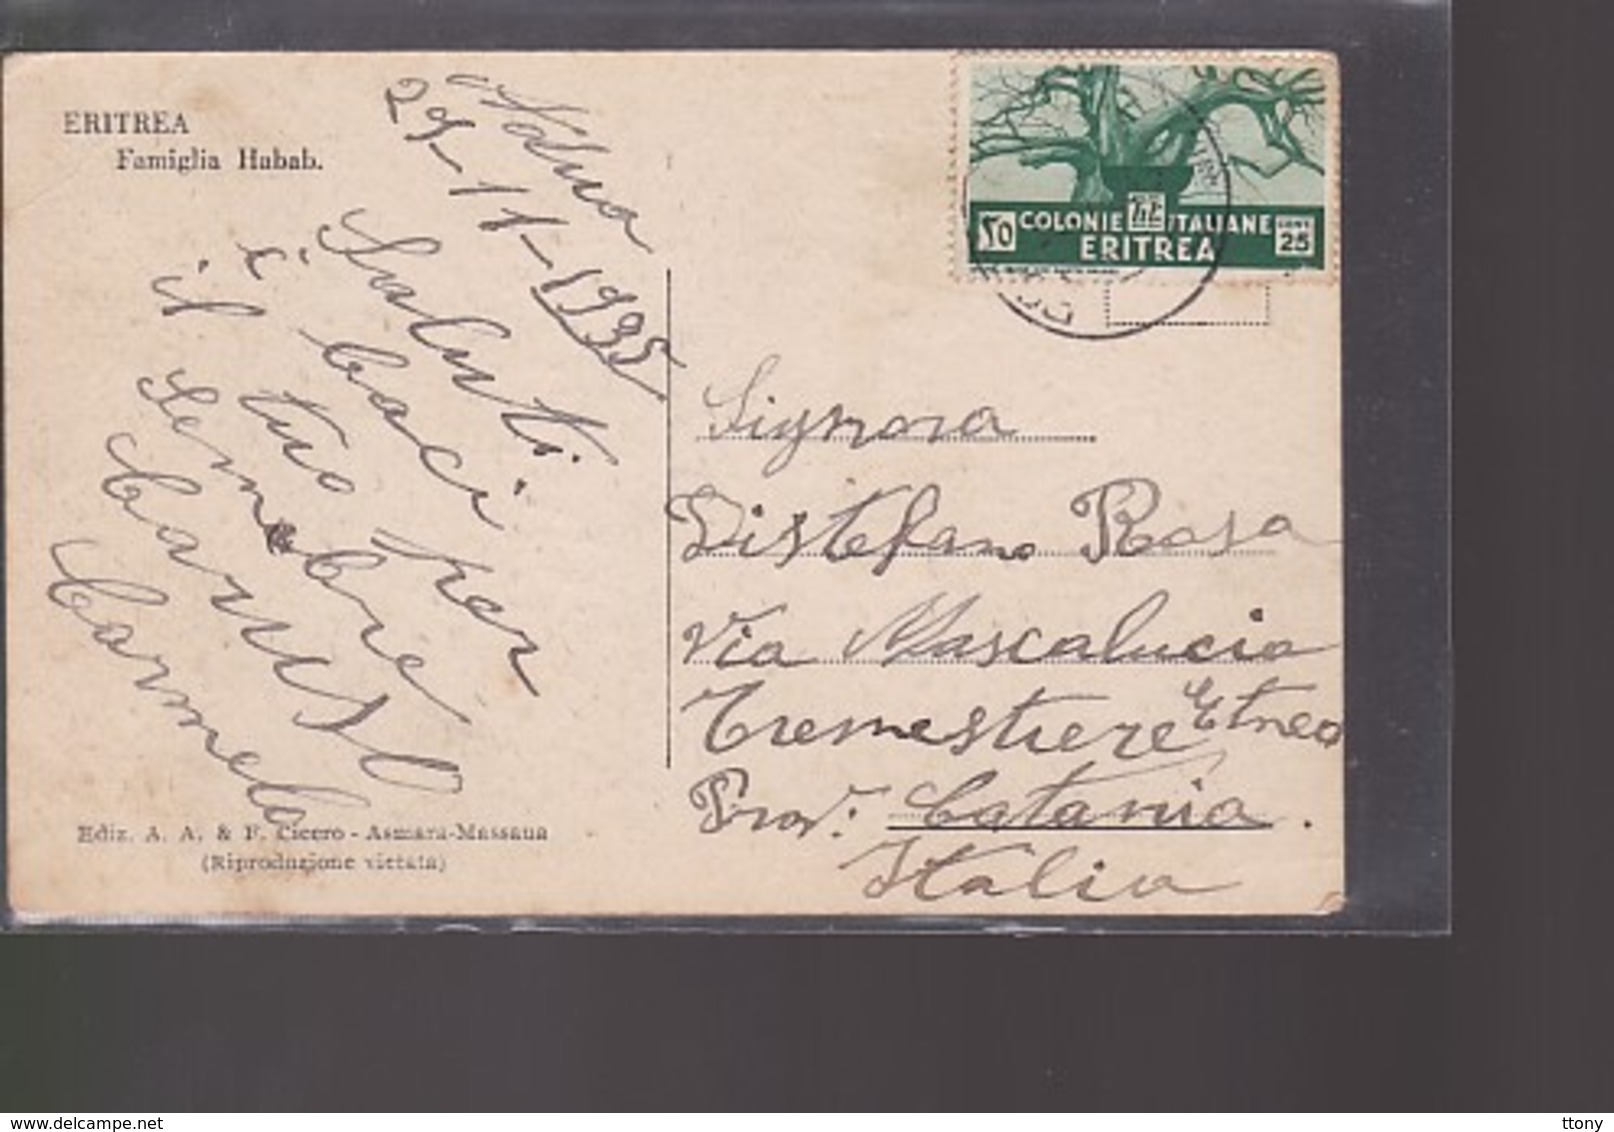 ERITREA
Famiglia Habab.
Adua
29-11-1935
Saluti
e baci
il tuo per
sempre
Caruso
Carmelo
Ediz. A. A. & F. Cicero - Asmara-Massaua
(Riproduzione vietata)
٢٥ COLONIE ITALIANE CENT 25
ERITREA
Signora
Distefano Rosa
Via Mascalucia
Tremestiere Etneo
Prov. Catania.
Italia
ttony